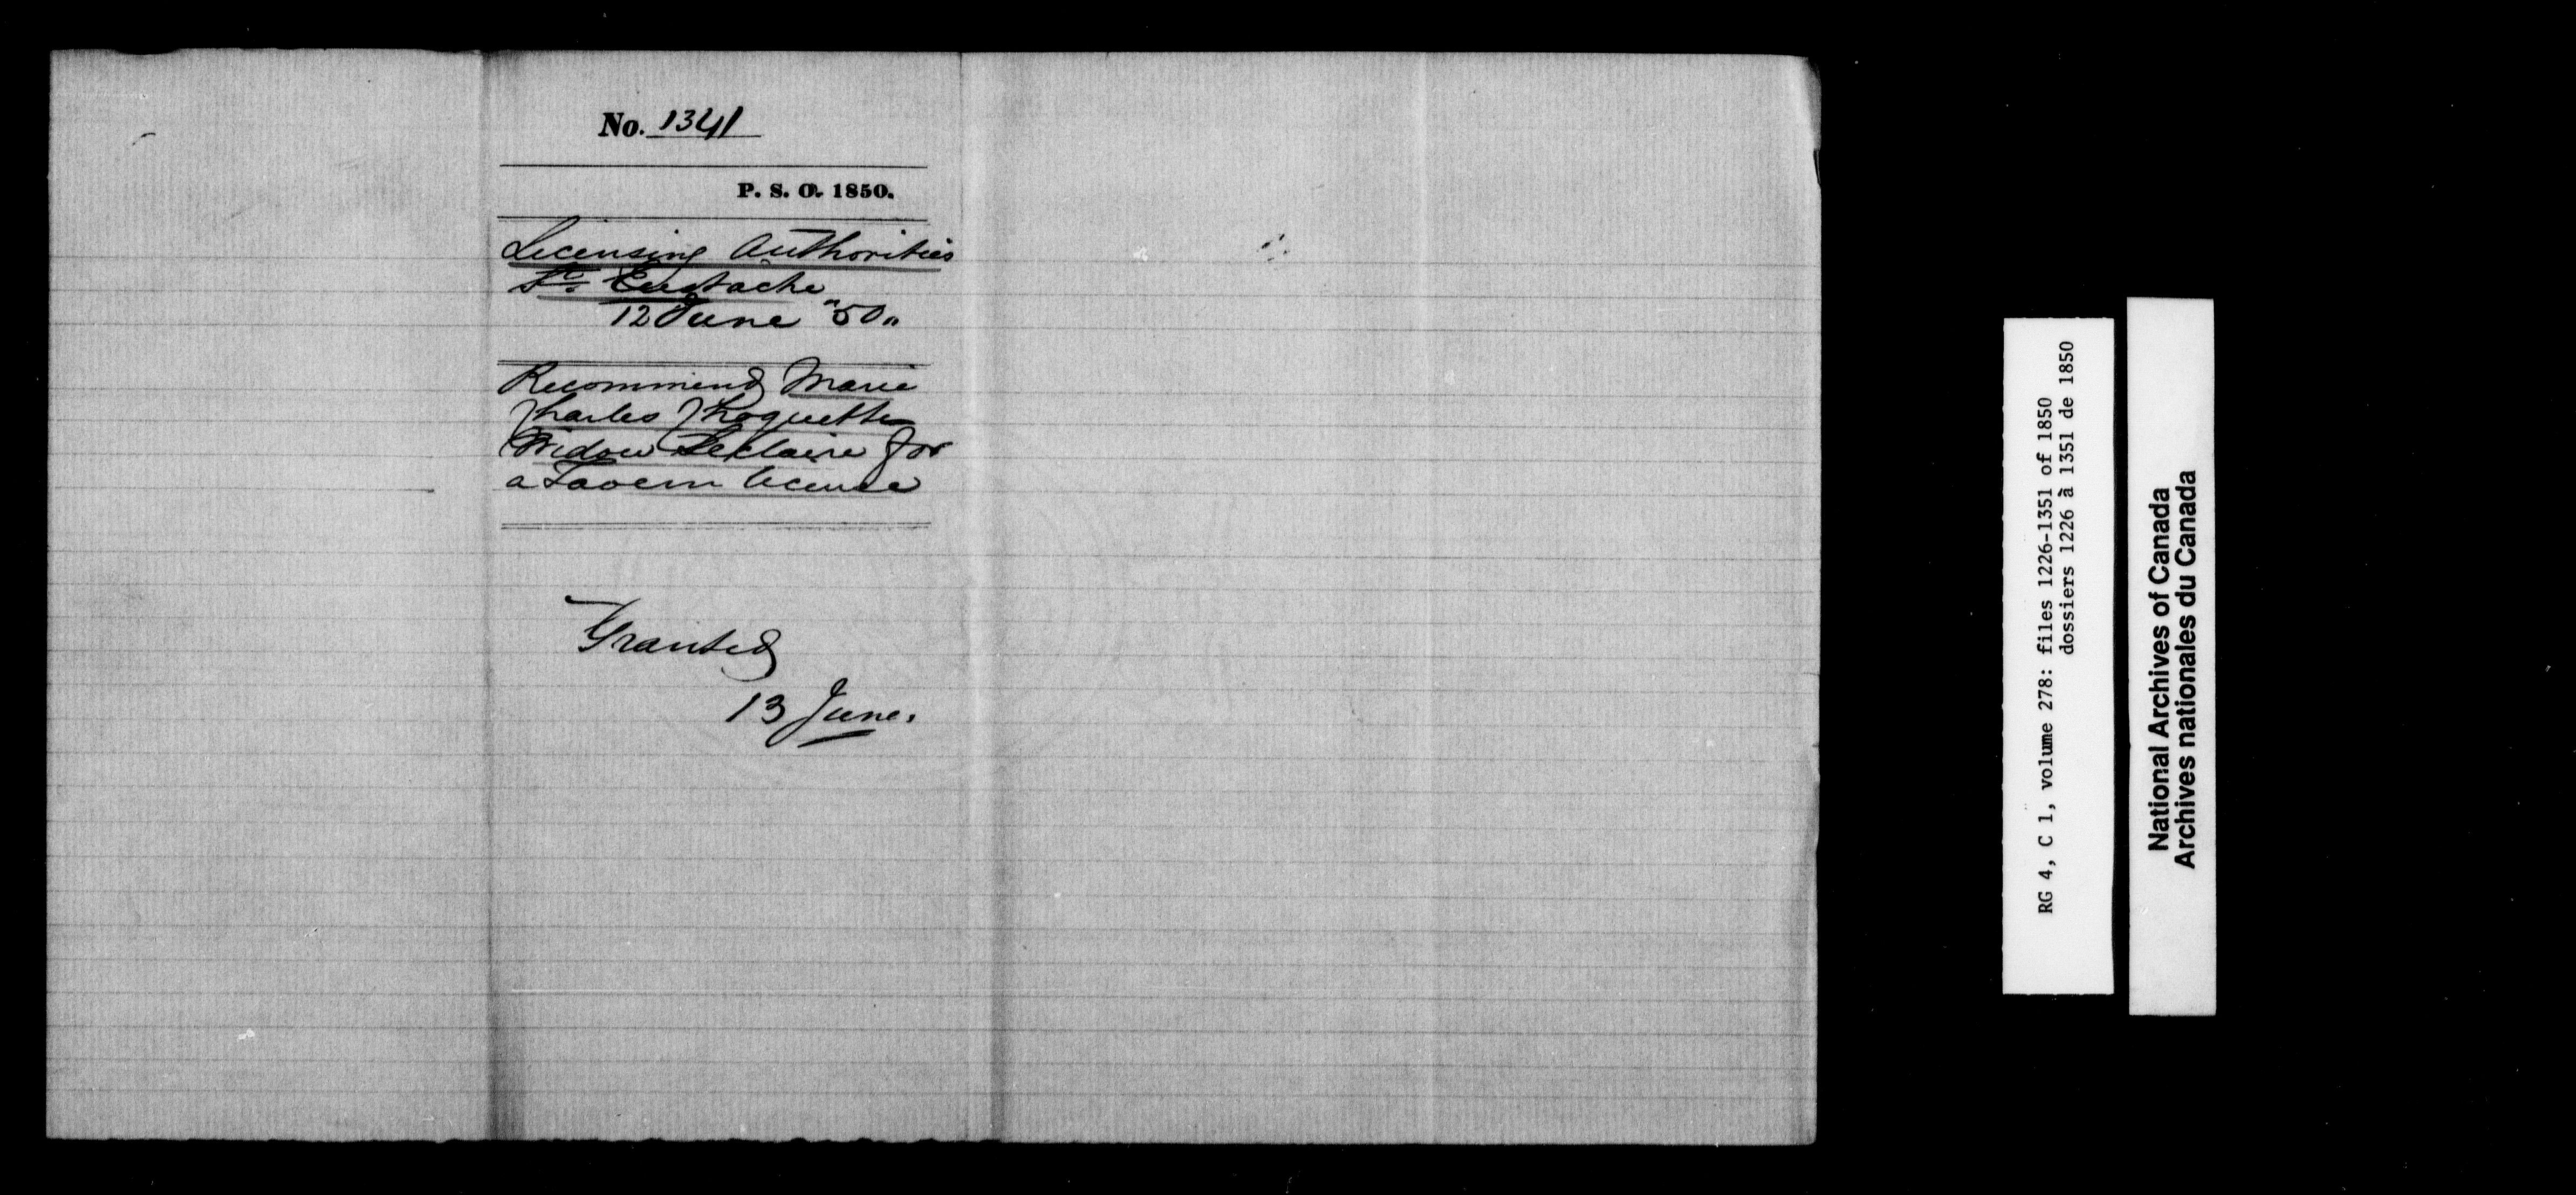 No. 1341
P. S. O. 1850.
Licensing Authorities
St. Eustache
12 June "50"
Recommend Marie
Charles Choquette
Widow Leclaire for
a Tavern license
Granted
13 June.
RG 4, C 1, volume 278: files 1226-1351 of 1850
dossiers 1226 à 1351 de 1850
National Archives of Canada
Archives nationales du Canada